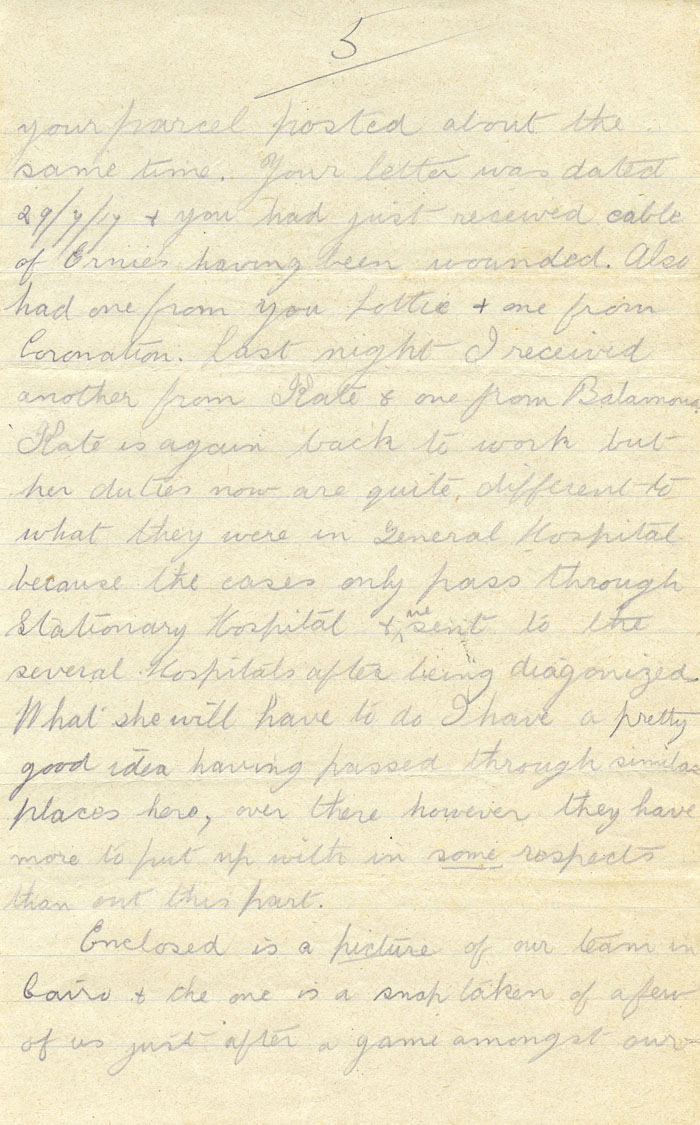 5
your parcel posted about the
same time. Your letter was dated
29/7/17 + you had just received cable
of Ernies having been wounded. Also
had one from you Lottie + one from
Coronation. Last night I received
another from Kate & one from
Kate is again back to work but
her duties now are quite different to
what they were in General Hospital
because the cases only pass through
Stationary Hospital + sent to the
several Hospitals after being diagonized.
What she will have to do I have a pretty
good idea having passed through similar
places here, over there however they have
more to put up with in some respects
than out this part.
Enclosed is a picture of our team in
Cairo & the one is a snap taken of a few
of us just after a game amongst our-